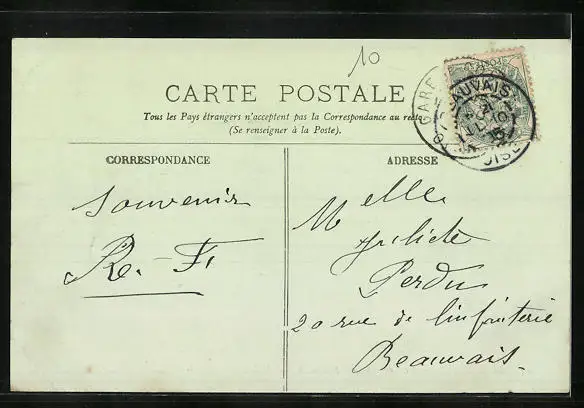 10
CARTE POSTALE
Tous les Pays étrangers n'acceptent pas la Correspondance au recto
(Se renseigner à la Poste).
GARE
BEAUVAIS
OISE
CORRESPONDANCE
ADRESSE
Souvenir
R.-F.
Melle
Perdu
20 rue de l'infanterie
Beauvais.